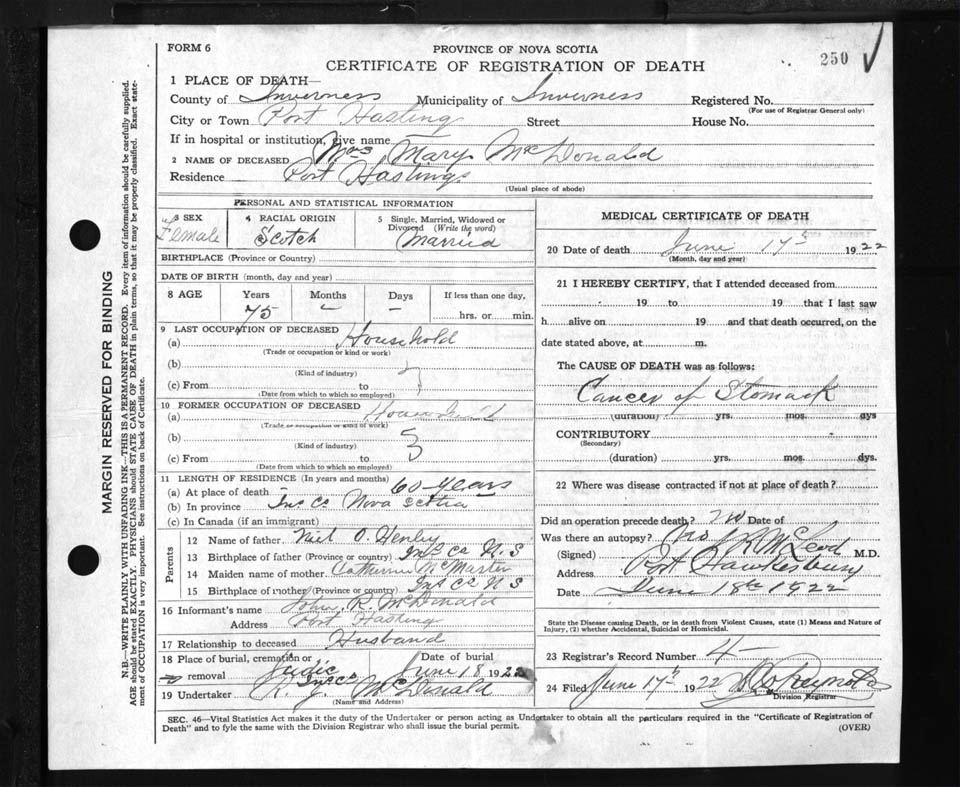 FORM 6
PROVINCE OF NOVA SCOTIA
CERTIFICATE OF REGISTRATION OF DEATH
250
1 PLACE OF DEATH—
County of Inverness Municipality of Inverness Registered No.
(For use of Registrar General only)
City or Town Port Hasting Street House No.
If in hospital or institution, give name
2 NAME OF DECEASED Mrs Mary McDonald
Residence Port Hastings
(Usual place of abode)
PERSONAL AND STATISTICAL INFORMATION
3 SEX Female
4 RACIAL ORIGIN Scotch
5 Single, Married, Widowed or Divorced (Write the word) Married
BIRTHPLACE (Province or Country)
DATE OF BIRTH (month, day and year)
8 AGE Years Months Days If less than one day,
75 – – hrs. or min.
9 LAST OCCUPATION OF DECEASED
(a) Household
(Trade or occupation or kind or work)
(b)
(Kind of industry)
(c) From to
(Date from which to which so employed)
10 FORMER OCCUPATION OF DECEASED
(a)
(Trade or occupation or kind of work)
(b)
(Kind of industry)
(c) From to
(Date from which to which so employed)
11 LENGTH OF RESIDENCE (In years and months)
(a) At place of death 60 years
(b) In province Ins Co Nova Scotia
(c) In Canada (if an immigrant)
Parents
12 Name of father Neil O. Henley
13 Birthplace of father (Province or country) Ins Co N.S
14 Maiden name of mother Catherine McMaster
15 Birthplace of mother (Province or country) Ins Co N S
16 Informant's name John R. McDonald
Address Port Hasting
17 Relationship to deceased Husband
18 Place of burial, cremation or removal Judic Ins Co Date of burial June 18 1922
19 Undertaker R. J. McDonald
(Name and Address)
MEDICAL CERTIFICATE OF DEATH
20 Date of death June 17 1922
(Month, day and year)
21 I HEREBY CERTIFY, that I attended deceased from
19 to 19 that I last saw
h alive on 19 and that death occurred, on the
date stated above, at m.
The CAUSE OF DEATH was as follows:
Cancer of Stomach
(duration) yrs. mos. days
CONTRIBUTORY
(Secondary)
(duration) yrs. mos. dys.
22 Where was disease contracted if not at place of death?
Did an operation precede death? no Date of
Was there an autopsy? no
(Signed) McLeod M.D.
Address Port Hawkesbury
Date June 18th 1922
State the Disease causing Death, or in death from Violent Causes, state (1) Means and Nature of
Injury, (2) whether Accidental, Suicidal or Homicidal.
23 Registrar's Record Number 4
24 Filed June 17th 1922
Division Registrar
SEC. 46—Vital Statistics Act makes it the duty of the Undertaker or person acting as Undertaker to obtain all the particulars required in the "Certificate of Registration of
Death" and to fyle the same with the Division Registrar who shall issue the burial permit.
(OVER)
MARGIN RESERVED FOR BINDING
N.B.—WRITE PLAINLY WITH UNFADING INK—THIS IS A PERMANENT RECORD. Every item of information should be carefully supplied.
AGE should be stated EXACTLY. PHYSICIANS should STATE CAUSE OF DEATH in plain terms, so that it may be properly classified. Exact state-
ment of OCCUPATION is very important. See instructions on back of Certificate.